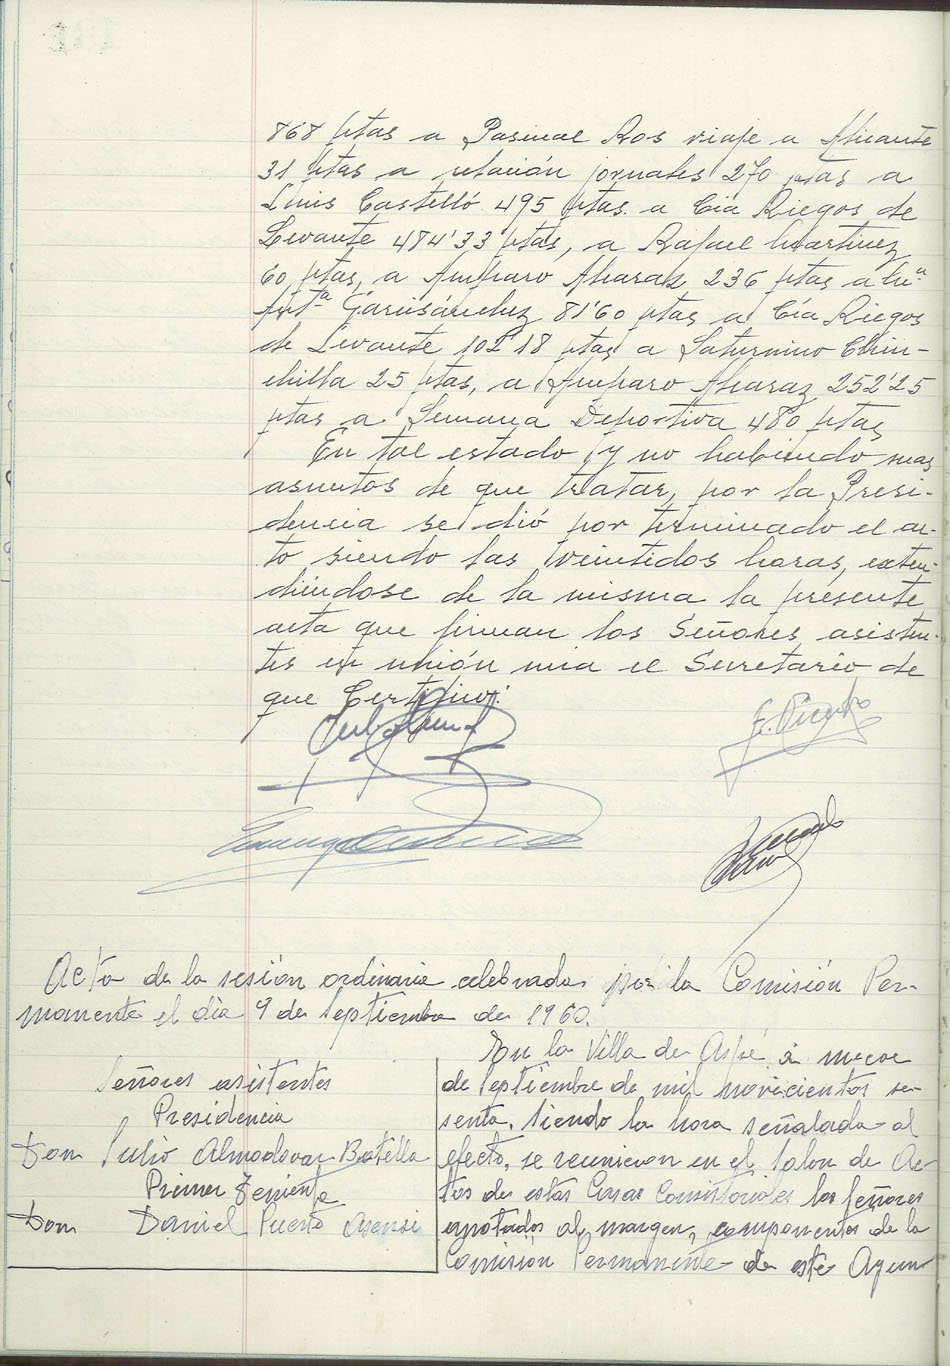 868 ptas a Pascual Ros viaje a Alicante
31 ptas a relación jornales 270 ptas a
Luis Castelló 495 ptas. a Cía Riegos de
Levante 484'33 ptas, a Rafael Martinez
60 ptas, a Amparo Alcaraz 236 ptas a Mª
Antª Garcisánchez 81'60 ptas a Cía Riegos
de Levante 102'18 ptas a Saturnino Chin-
chilla 25 ptas, a Amparo Alcaraz 252'25
ptas a Semana Deportiva 480 ptas
En tal estado y no habiendo mas
asuntos de que tratar, por la Presi-
dencia se dió por terminado el ac-
to siendo las veintidos horas, exten-
diéndose de la misma la presente
acta que firman los Señores asisten-
tes en unión mia el Secretario de
que Certifico:
Acta de la sesión ordinaria celebrada por la Comisión Per-
manente el día 9 de Septiembre de 1960.
Señores asistentes
Presidencia
Don Julio Almodovar Botella
Primer Teniente
Don Daniel Puerto Asensi
En la Villa de Aspe a nueve
de Septiembre de mil novecientos se-
senta, siendo la hora señalada al
efecto, se reunieron en el Salon de Ac-
tos de estas Casas Consistoriales los Señores
anotados al margen, componentes de la
Comisión Permanente de este Ayun-